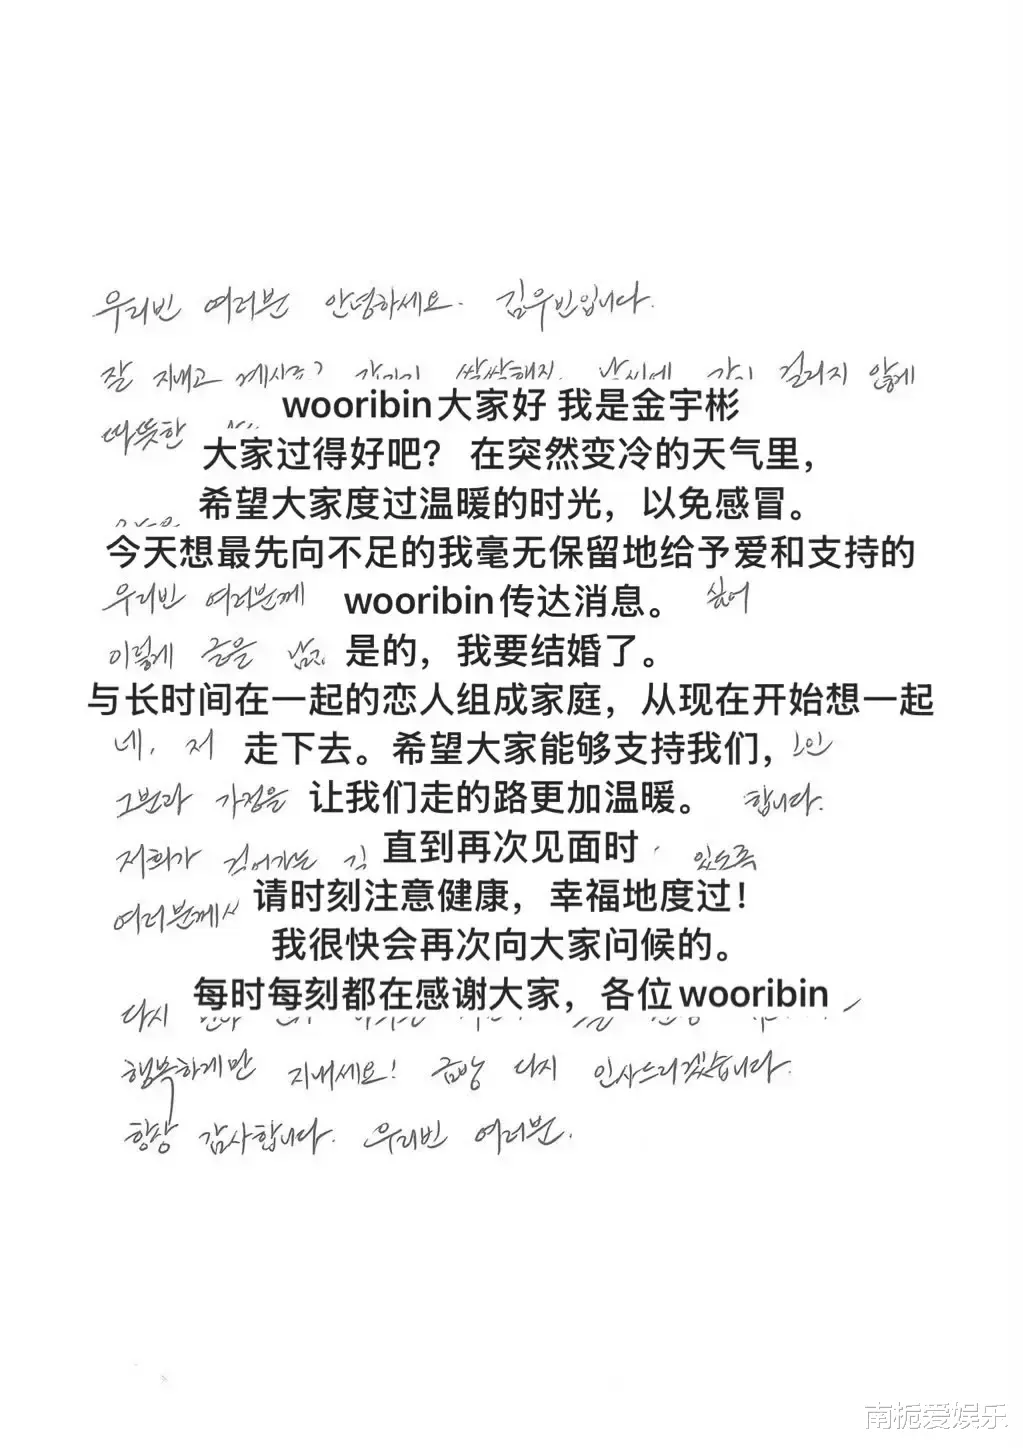 우리빈 여러분 안녕하세요. 김우빈입니다.
잘 지내고 계시죠? 걸리지 않게
wooribin大家好 我是金宇彬
따뜻한
大家过得好吧？ 在突然变冷的天气里，
希望大家度过温暖的时光，以免感冒。
今天想最先向不足的我毫无保留地给予爱和支持的
우리빈 여러분께 wooribin传达消息。 싶어
이렇게 글을 是的，我要结婚了。
与长时间在一起的恋人组成家庭，从现在开始想一起
네, 저 走下去。希望大家能够支持我们，
그분과 가정을 让我们走的路更加温暖。 합니다.
저희가 걸어가는 直到再次见面时 있도록
여러분께서 请时刻注意健康，幸福地度过！
我很快会再次向大家问候的。
每时每刻都在感谢大家，各位wooribin
다시
행복하게만 지내세요! 금방 다시 인사드리겠습니다.
항상 감사합니다. 우리빈 여러분.
南栀爱娱乐